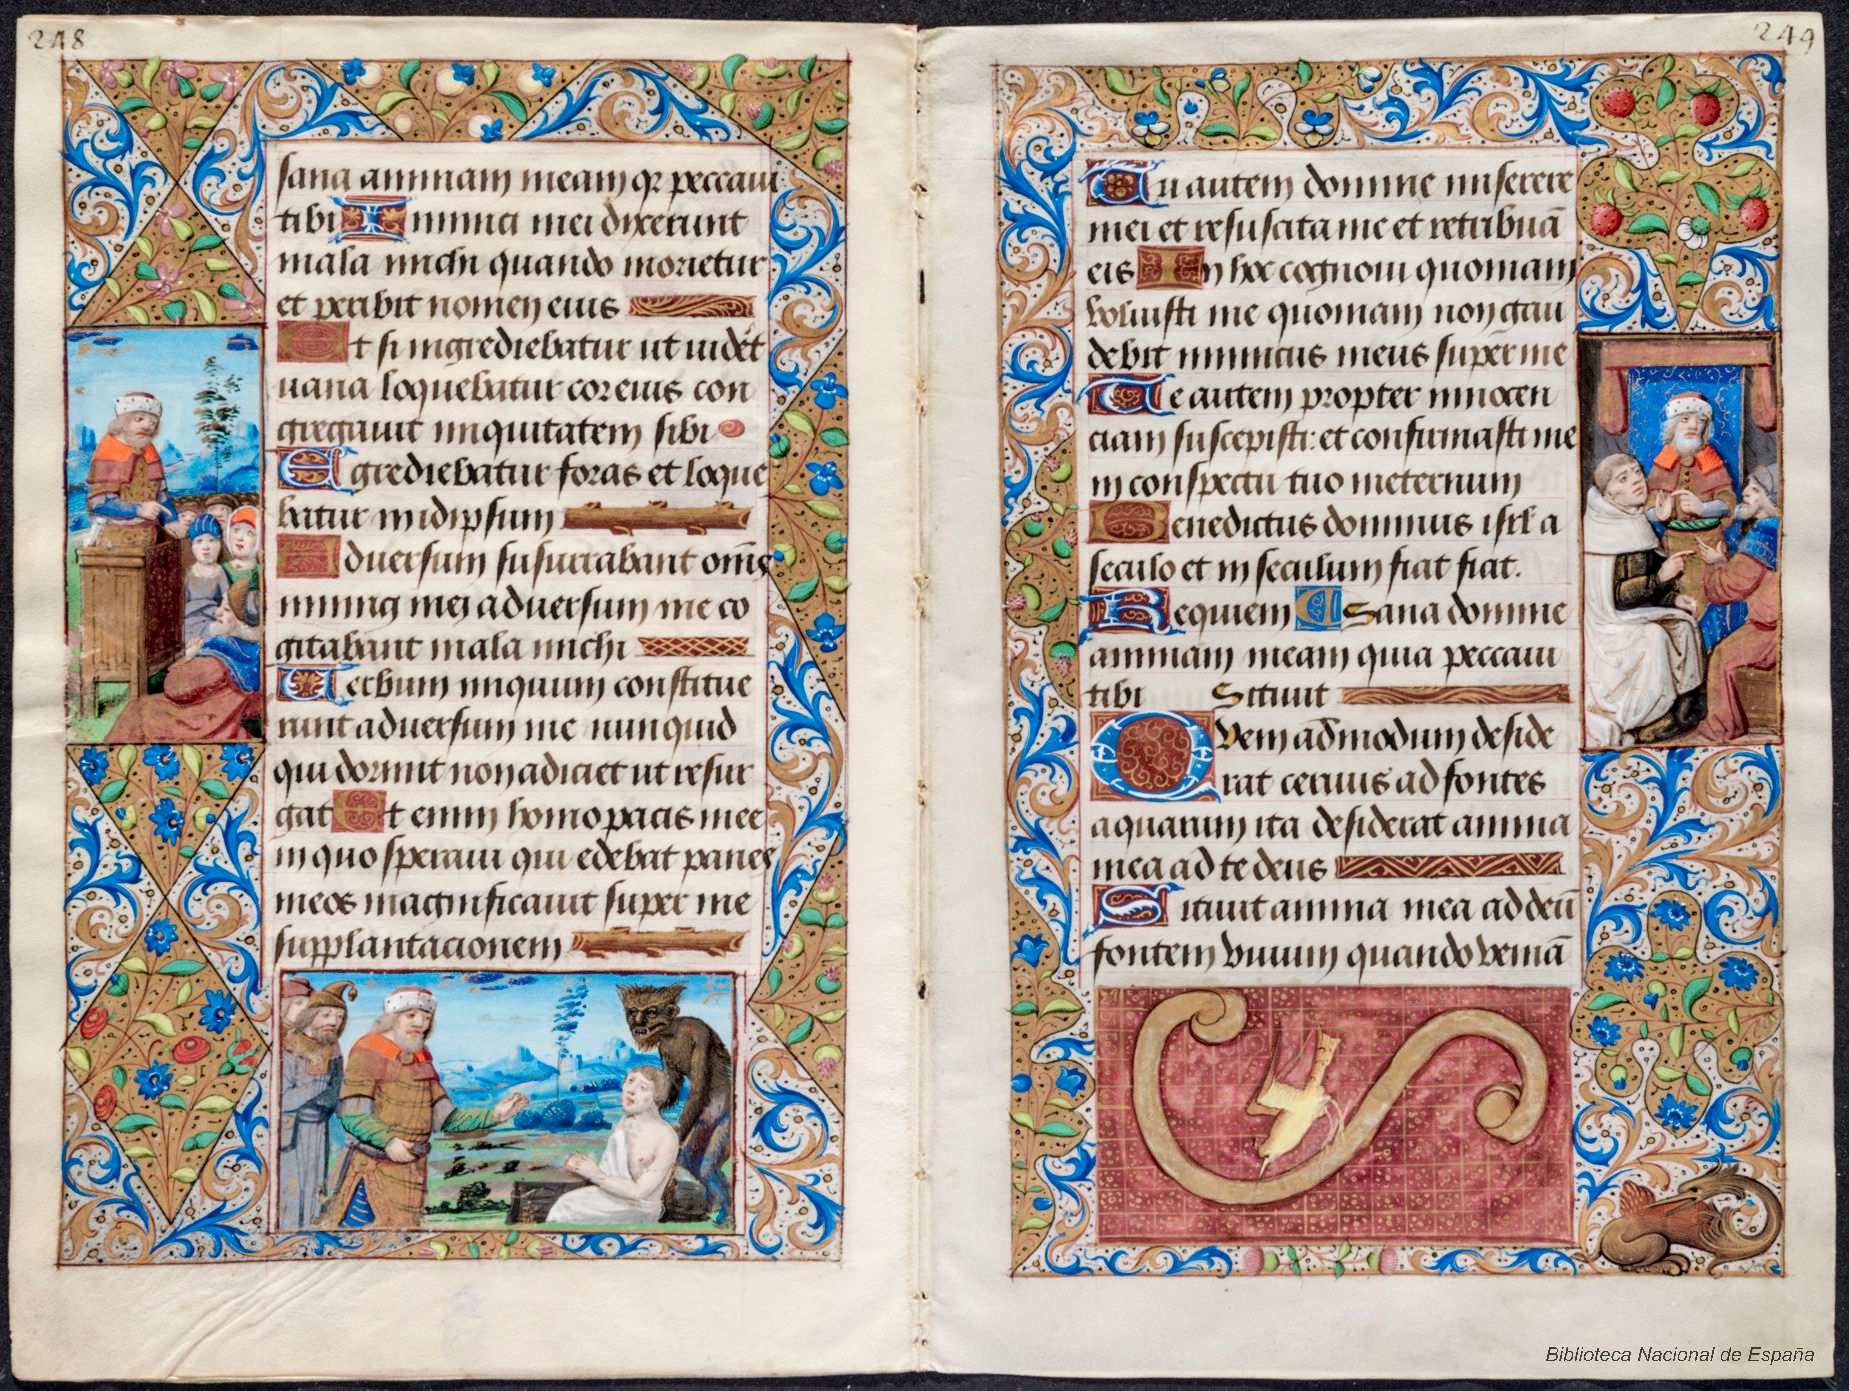 248
sana animam meam qr peccaui
tibi Inimici mei dixerunt
mala michi quando morietur
et peribit nomen eius
Et si ingrediebatur ut uidēt
uana loquebatur cor eius con
gregauit iniquitatem sibi
Egrediebatur foras et loque
batur in idipsum
Aduersum susurrabant om̄s
inimici mei aduersum me co
gitabant mala michi
Verbum iniquum constitue
runt aduersum me nunquid
qui dormit non adiciet ut resur
gat Et enim homo pacis mee
in quo speraui qui edebat panes
meos magnificauit super me
supplantacionem
249
Tu autem domine miserere
mei et resuscita me et retribuā
eis In hoc cognoui quoniam
voluisti me quoniam non gau
debit inimicus meus super me
Te autem propter innocen
ciam suscepisti: et confirmasti me
in conspectu tuo in eternum
Benedictus dominus isrl a
seculo et in seculum fiat fiat.
Requiem A Sana domine
animam meam quia peccaui
tibi Sitiuit
Quem admodum deside
rat ceruus ad fontes
aquarum ita desiderat anima
mea ad te deus
Sitiuit anima mea ad deū
fontem viuum quando veniā
Biblioteca Nacional de España